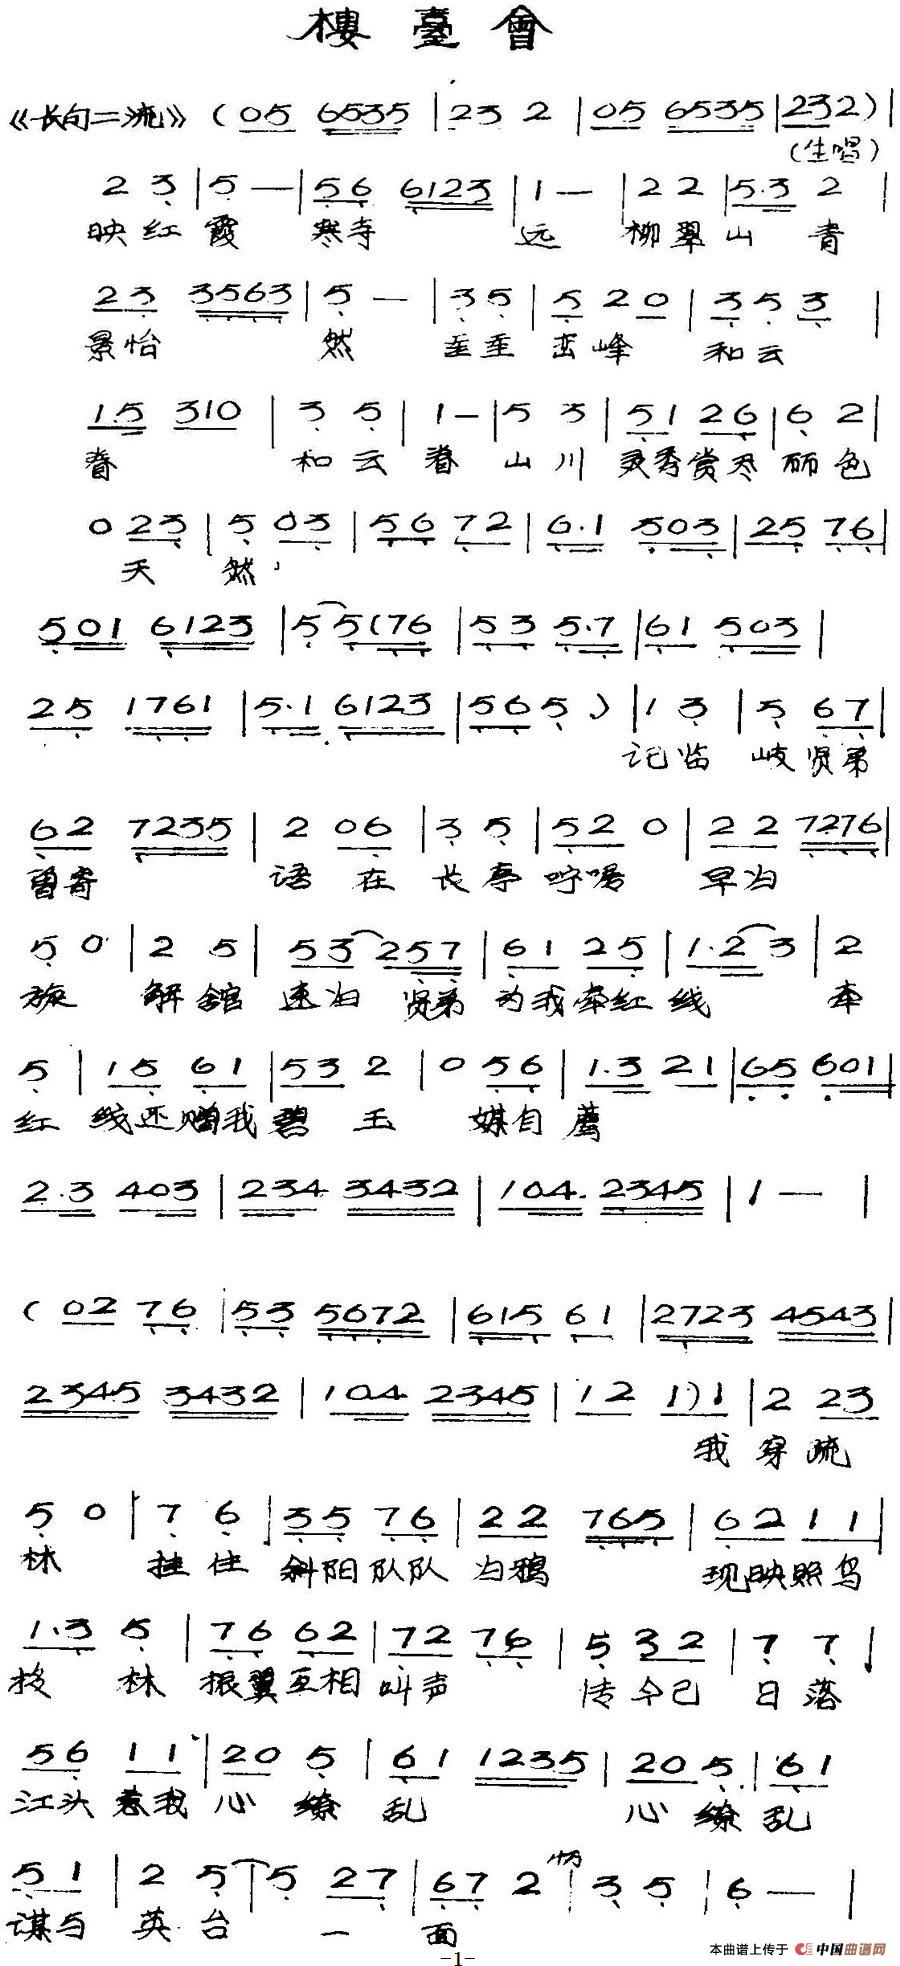 樓臺會
《长句二流》(05 6535|23 2|05 6535|232)|
(生唱)
2 3|5 —|56 6123|1 —|22|5·3 2|
映红霞 寒寺 远 柳翠山 青
23 3563|5 —|35|5 20|35 3|
景怡 然 重重 峦峰 和云
15 310|3 5|1 —|5 3|51 26|6 2|
眷 和云眷 山川 灵秀赏尽 丽色
0 23|5 03|56 72|6·1 503|25 76|
天 然
501 6123|5 5(76|53 5·7|61 503|
25 1761|5·1 6123|565)|1 3|5 67|
记临 岐贤弟
62 7235|2 06|3 5|52 0|22 7276|
曾寄 语 在 长亭 咛嘱 早归
5 0|2 5|53 257|61 25|1·2 3|2
旋 解馆 速归 贤弟 为我牵红线 牵
5|15 61|53 2|0 56|1·3 21|65 601|
红 线还赠我碧 玉 媒自荐
2·3 403|234 3432|104 2345|1 —|
(02 76|53 5672|615 61|2723 4543|
2345 3432|104 2345|12 1)1|2 23
我穿疏
5 0|7 6|35 76|22 765|62 11|
林 挂住 斜阳队队 归鸦 现映照鸟
1·3 5|76 62|72 76|5 32|7 7|
投 林 振翼互相 叫声 传今已 日落
56 11|20 5|61 1235|20 5|61
江头惹我 心 缭 乱 心 缭乱
51|2 5|5 27|67 2|3 5|6 —|
谋与 英台 一 面
-1-
本曲谱上传于 中国曲谱网